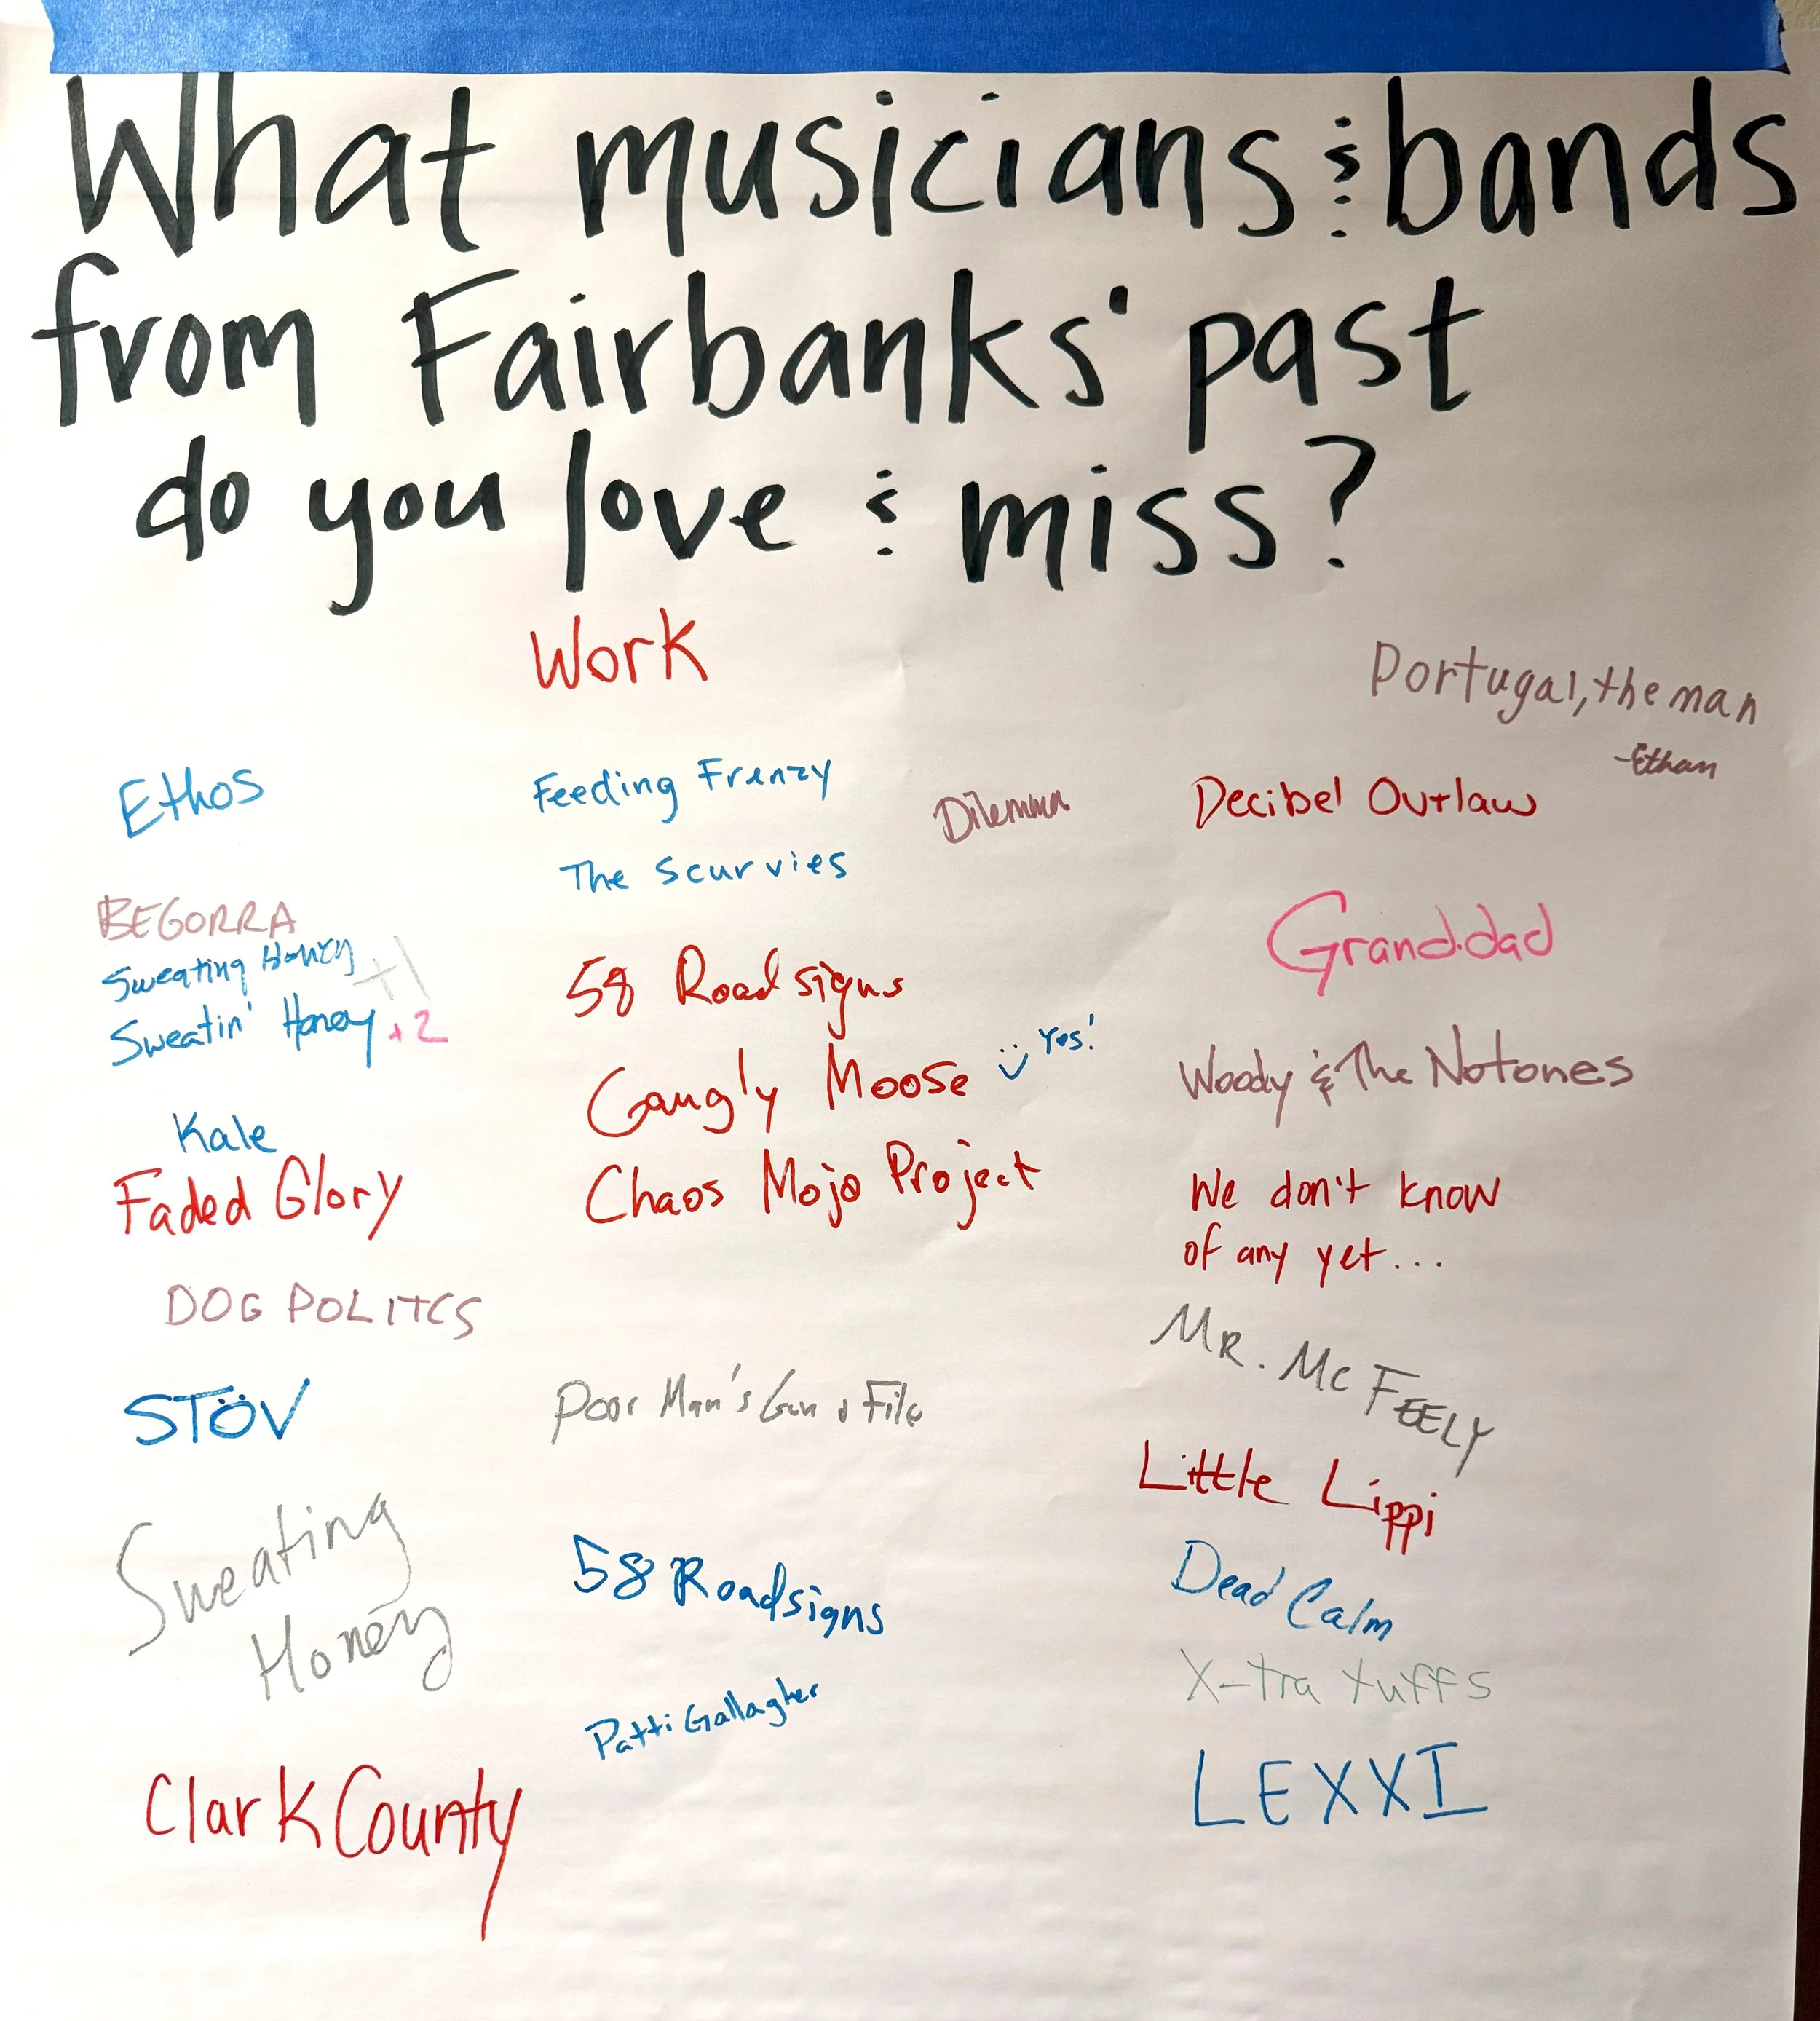 What musicians & bands
from Fairbanks' past
do you love & miss?
Work
Portugal, the man
-Ethan
Ethos
Feeding Frenzy
Dilemma
Decibel Outlaw
The Scurvies
BEGORRA
Sweating Honey +1
Sweatin' Honey +2
Grand.dad
58 Road signs
Gangly Moose Yes!
Woody & The Notones
Kale
Faded Glory
Chaos Mojo Project
We don't know
of any yet...
DOG POLITCS
MR. MC FEELY
STÖV
Poor Man's Gun & File
Little Lippi
Sweating
Honey
58 Roadsigns
Dead Calm
X-tra tuffs
Patti Gallagher
Clark County
LEXXI